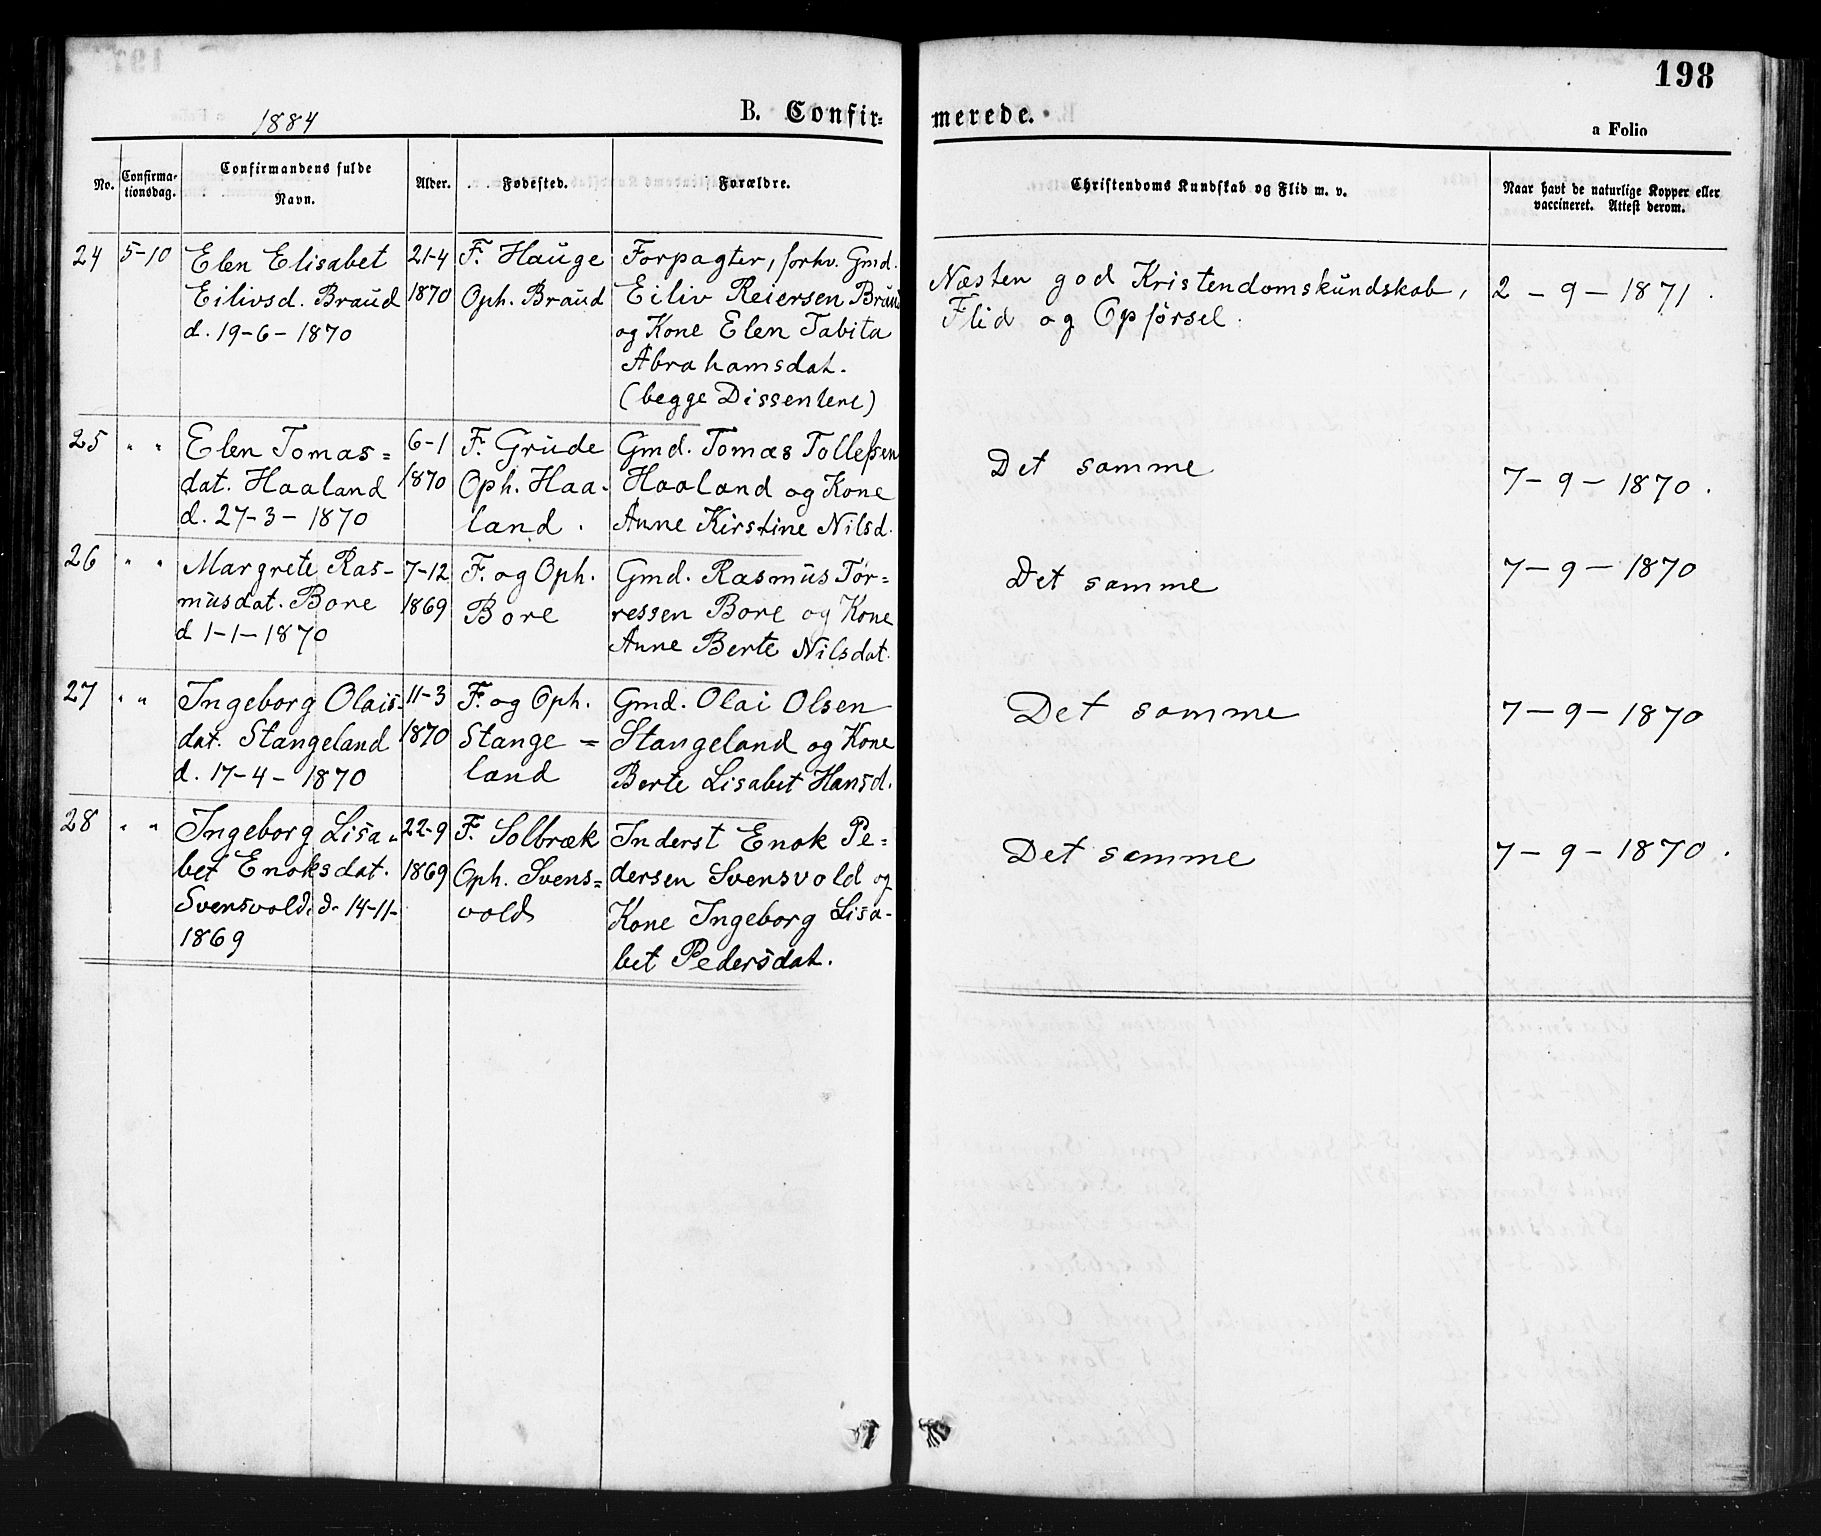 198
1884
B. Confirmerede.
a Folio
No.
Confirmationsdag.
Confirmandens fulde Navn.
Alder.
Fødested.
Forældre.
Christendoms Kundskab og Flid m. v.
Naar havt de naturlige Kopper eller vaccineret. Attest derom.
24
5-10
Elen Elisabet
Eilivsd. Braud
d. 19-6-1870
21-4
1870
F. Hauge
Oph. Braud
Forpagter, forhv. Gmd.
Eiliv Reiersen Braud
og Kone Elen Tabita
Abrahamsdat.
(begge Dissentere)
Næsten god Kristendomskundskab,
Flid og Opførsel.
2-9-1871.
25
" "
Elen Tomas=
dat. Haaland
d. 27-3-1870
6-1
1870
F. Grude
Oph. Haa-
land.
Gmd. Tomas Tollefsen
Haaland og Kone
Anne Kirstine Nilsd.
Det samme
7-9-1870.
26
" "
Margrete Ras-
musdat. Bore
d 1-1-1870
7-12
1869
F. og Oph.
Bore
Gmd. Rasmus Tør=
ressen Bore og Kone
Anne Berte Nilsdat.
Det samme
7-9-1870
27
" "
Ingeborg Olais-
dat. Stangeland
d. 17-4-1870
11-3
1870
F. og Oph.
Stange=
land
Gmd. Olai Olsen
Stangeland og Kone
Berte Lisabet Hansd.
Det samme
7-9-1870
28
" "
Ingeborg Lisa-
bet Enoksdat.
Svensvold. d. 14-11-
1869
22-9
1869
F. Solbræk
Oph. Svens=
vold
Inderst Enok Pe=
dersen Svensvold og
Kone Ingeborg Lisa-
bet Pedersdat.
Det samme
7-9-1870.